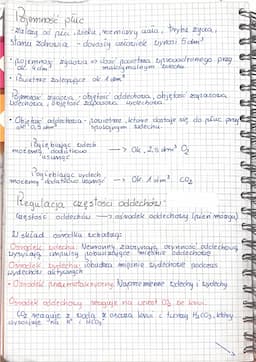 Pojemność płuc
• Zależy od płci, wieku, rozmiary ciała, trybu życia,
stanu zdrowia - dorosły człowiek wynosi 5 dm³
• pojemność życiowa => ilość powietrza
ok 4 dm³ maksymalnym wdechu
• Powietrze zalegające ok 1 dm³
Pojemność życiowa - objętość oddechowa, objętość zapasowa
wdechowa, objętość zapasowa wydechowa
• Objętość oddechowa - powietrze, które dostaje się do płuc przy
ok 0,5 dm³ spokojnym wdechu
Pogłębiając wdech
możemy dodatkowo —> Ok. 2,5 dm³ O₂
usunąć
Pogłębiając wydech
możemy dodatkowo usunąć —> Ok 1 dm³ CO₂
Regulacja częstości oddechów
Częstość oddechów —> ośrodek oddechowy (pień mózgu)
W skład ośrodka wchodzą:
Ośrodek wdechu: Nerwowy oddechową
wysyłają impulsy pobudzające mięśnie oddechowe
Ośrodek wydechu: pobudza mięśnie wydechowe podczas
wydechów aktywnych
• Ośrodek pneumotaksyczny: Naprzemienne wdechy i wydechy
Ośrodek oddechowy reaguje na wzrost CO₂ we krwi.
CO₂ reaguje z wodą z osocza krwi i tworzy H₂CO₃, który
dysocjuje na H⁺ i HCO₃⁻